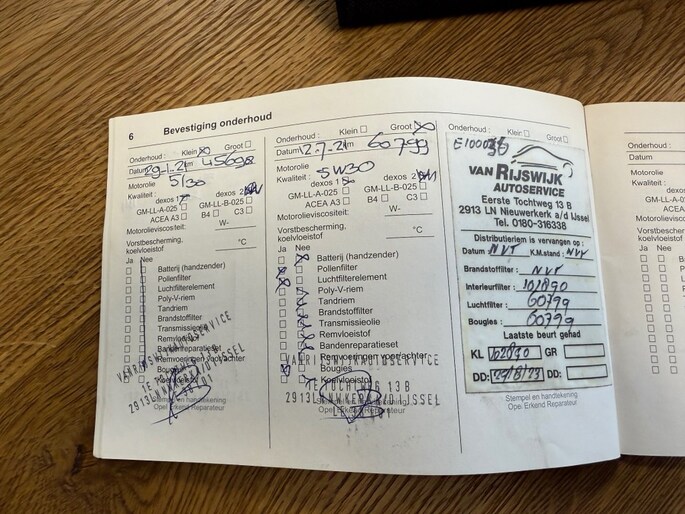 6
Bevestiging onderhoud
Onderhoud : Klein Groot
Datum km 45698
Motorolie 5/30
Kwaliteit :
dexos 1 dexos 2
GM-LL-A-025 GM-LL-B-025
ACEA A3 B4 C3
Motorolieviscositeit: W-
Vorstbescherming,
koelvloeistof °C
Ja Nee
Batterij (handzender)
Pollenfilter
Luchtfilterelement
Poly-V-riem
Tandriem
Brandstoffilter
Transmissieolie
Remvloeistof
Bandenreparatieset
Remvoeringen voor/achter
Bougies
Koelvloeistof
Stempel en handtekening
Opel Erkend Reparateur
Onderhoud : Klein Groot
Datum 2-7-21 km 60799
Motorolie
Kwaliteit : 5W30
dexos 1 dexos 2
GM-LL-A-025 GM-LL-B-025
ACEA A3 B4 C3
Motorolieviscositeit: W-
Vorstbescherming,
koelvloeistof °C
Ja Nee
Batterij (handzender)
Pollenfilter
Luchtfilterelement
Poly-V-riem
Tandriem
Brandstoffilter
Transmissieolie
Remvloeistof
Bandenreparatieset
Remvoeringen voor/achter
VAN RIJSWIJK AUTOSERVICE
Bougies
Koelvloeistof
1E TOCHTWEG 13 B
2913LN NWKERK A/D IJSSEL
Stempel en handtekening
Opel Erkend Reparateur
Onderhoud : Klein Groot
VAN RIJSWIJK
AUTOSERVICE
Eerste Tochtweg 13 B
2913 LN Nieuwerkerk a/d IJssel
Tel. 0180-316338
Distributieriem is vervangen op :
Datum : NVT K.M.stand : NVT
Brandstoffilter : NVT
Interieurfilter : 102890
Luchtfilter : 60799
Bougies : 60799
Laatste beurt gehad
KL 102890 GR
DD: 27/6/23 DD:
Stempel en handtekening
Opel Erkend Reparateur
Onderhoud :
Datum
Motorolie
Kwaliteit :
Ja